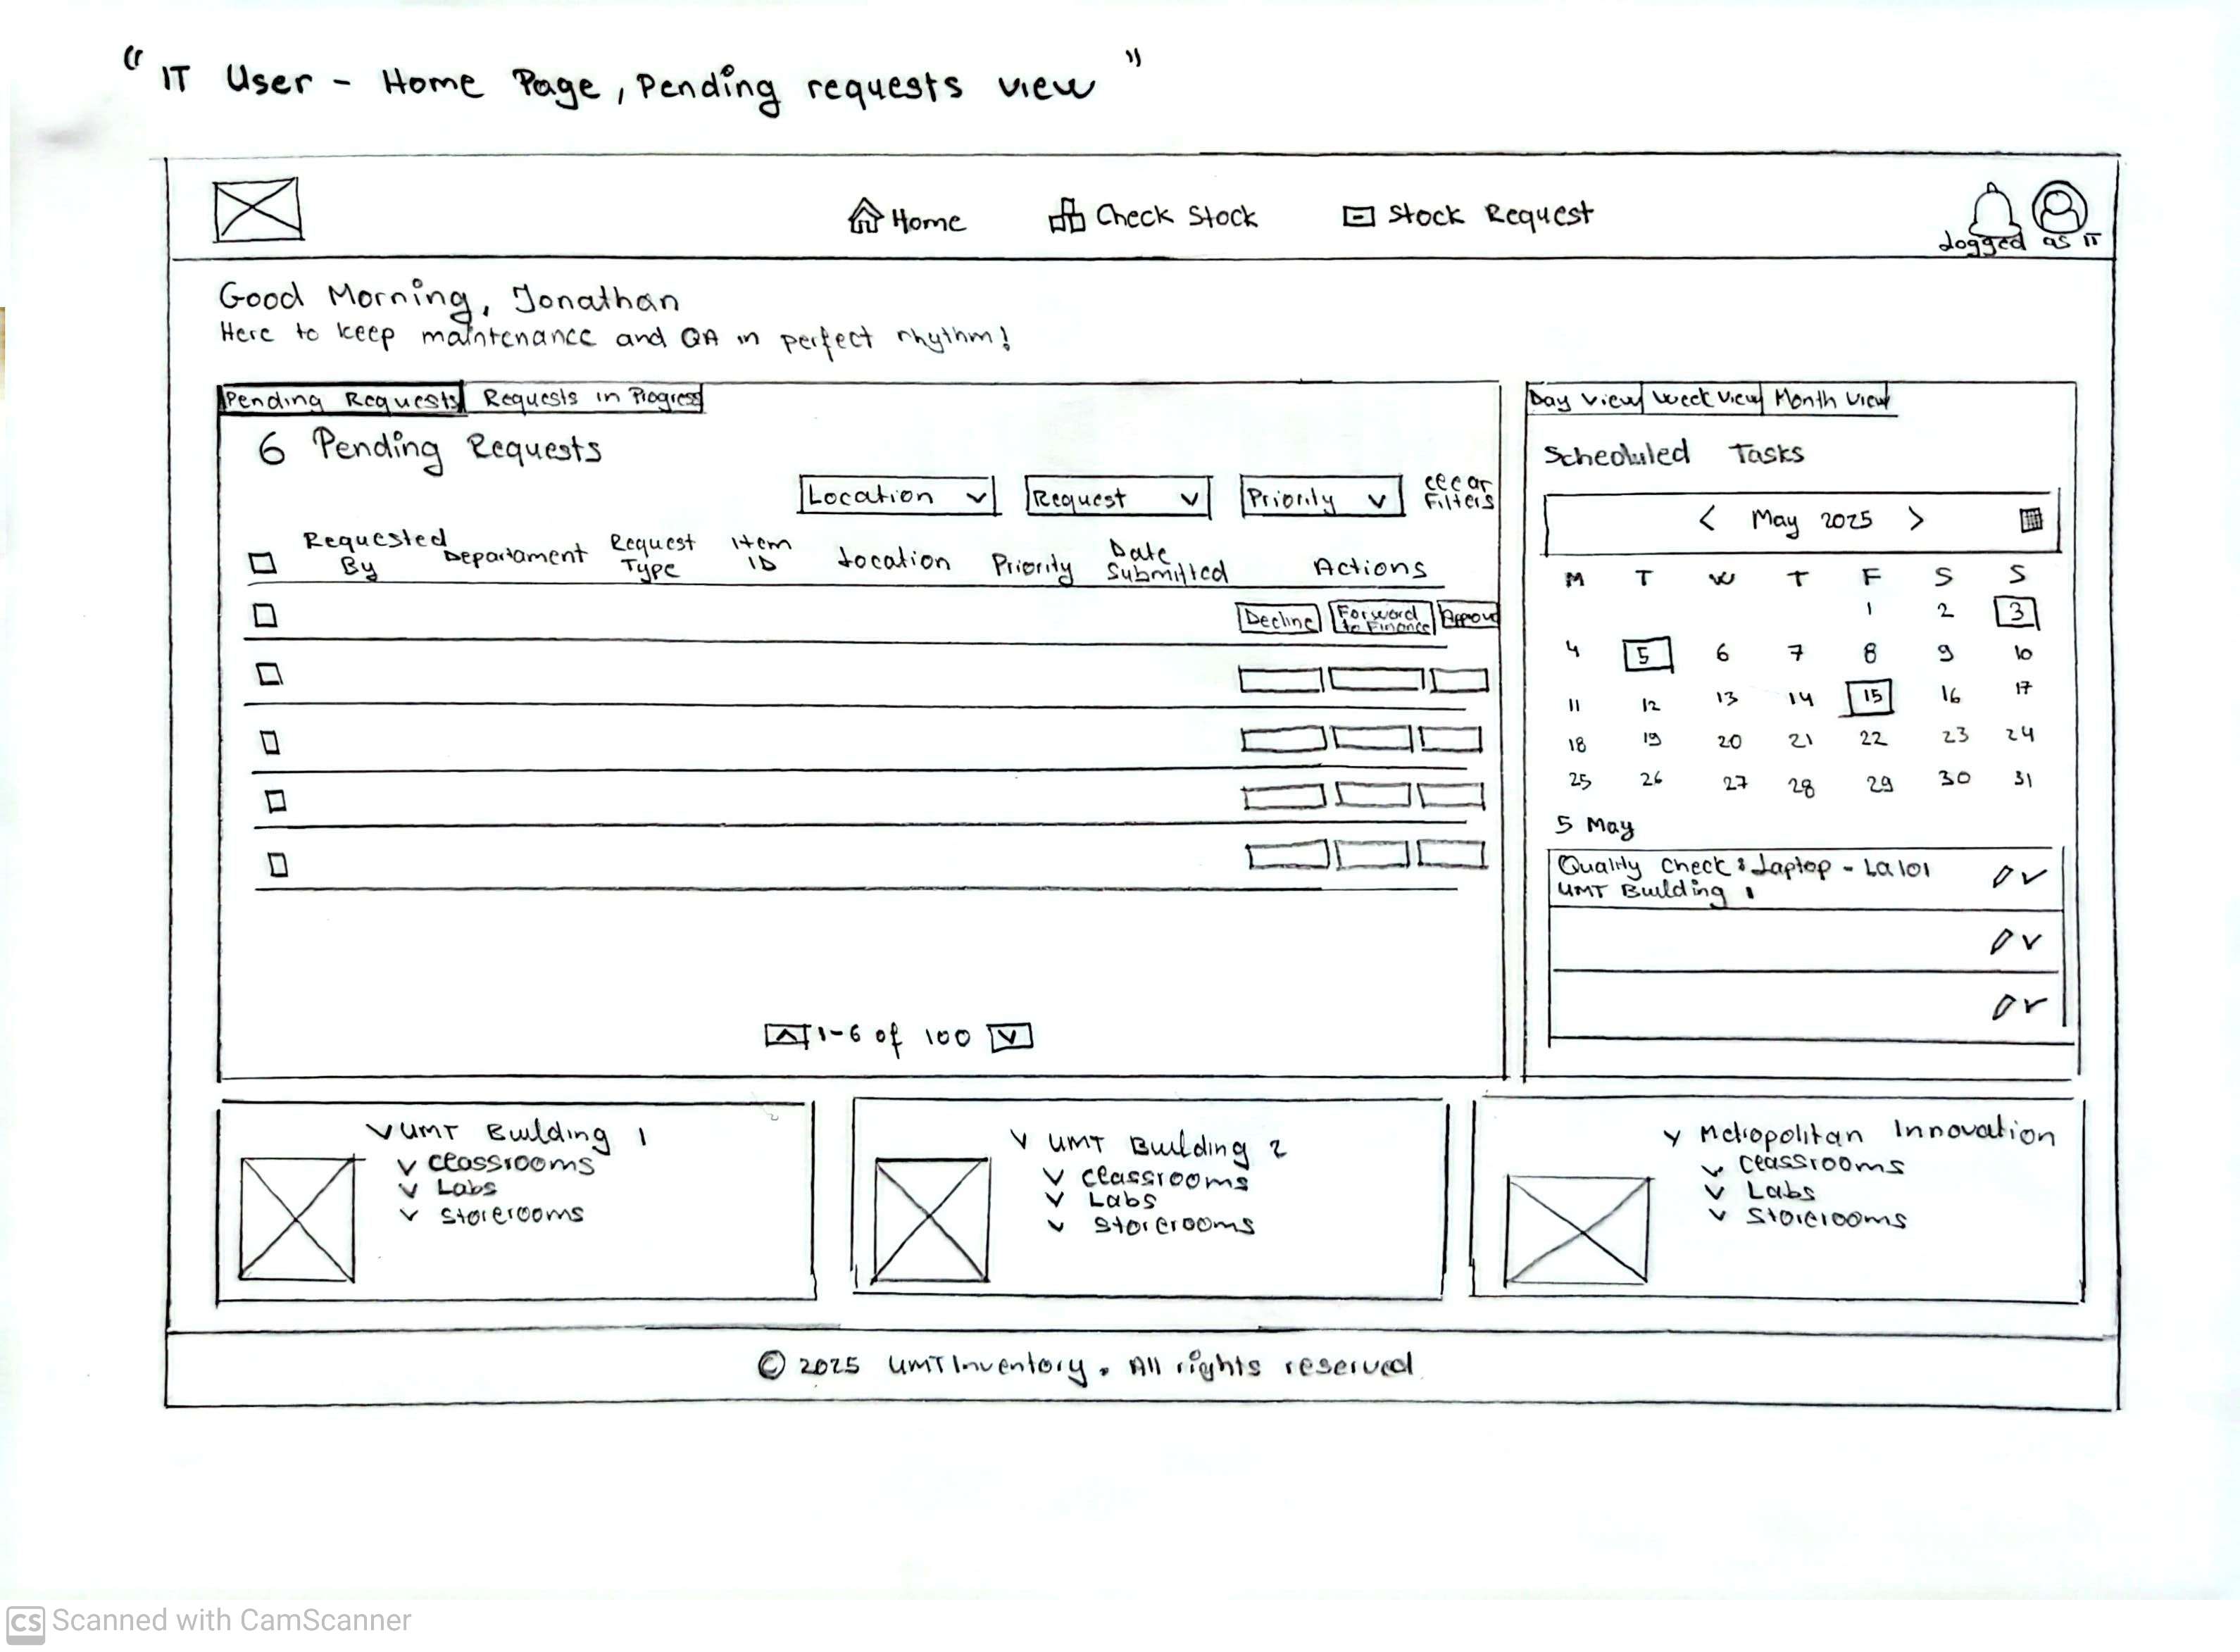 "IT User - Home Page, Pending requests view"
Home
Check Stock
Stock Request
Logged as IT
Good Morning, Jonathan
Here to keep maintenance and QA in perfect rhythm!
Pending Requests
Requests in Progress
6 Pending Requests
Location
Request
Priority
Clear
Filters
Requested By
Departament
Request Type
Item ID
Location
Priority
Date Submitted
Actions
Decline
Forward to Finance
Approve
1-6 of 100
Day View
Week View
Month View
Scheduled Tasks
< May 2025 >
M T W T F S S
1 2 3
4 5 6 7 8 9 10
11 12 13 14 15 16 17
18 19 20 21 22 23 24
25 26 27 28 29 30 31
5 May
Quality Check: Laptop - La101
UMT Building 1
UMT Building 1
Classrooms
Labs
Storerooms
UMT Building 2
Classrooms
Labs
Storerooms
Metropolitan Innovation
Classrooms
Labs
Storerooms
© 2025 UMTInventory. All rights reserved
CS Scanned with CamScanner